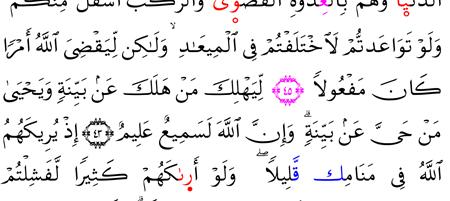 ٱلدُّنۡيَا وَهُم بِٱلۡعُدۡوَةِ ٱلۡقُصۡوَىٰ وَٱلرَّكۡبُ أَسۡفَلَ مِنكُمۡ
وَلَوۡ تَوَاعَدتُّمۡ لَٱخۡتَلَفۡتُمۡ فِي ٱلۡمِيعَٰدِ ۙ وَلَٰكِن لِّيَقۡضِيَ ٱللَّهُ أَمۡرٗا
كَانَ مَفۡعُولٗا ۝٤٥ لِّيَهۡلِكَ مَنۡ هَلَكَ عَنۢ بَيِّنَةٖ وَيَحۡيَىٰ
مَنۡ حَيَّ عَنۢ بَيِّنَةٖ ۗ وَإِنَّ ٱللَّهَ لَسَمِيعٌ عَلِيمٌ ۝٤٣ إِذۡ يُرِيكَهُمُ
ٱللَّهُ فِي مَنَامِك قَّلِيلٗا ۖ وَلَوۡ أَرَىٰكَهُمۡ كَثِيرٗا لَّفَشِلۡتُمۡ